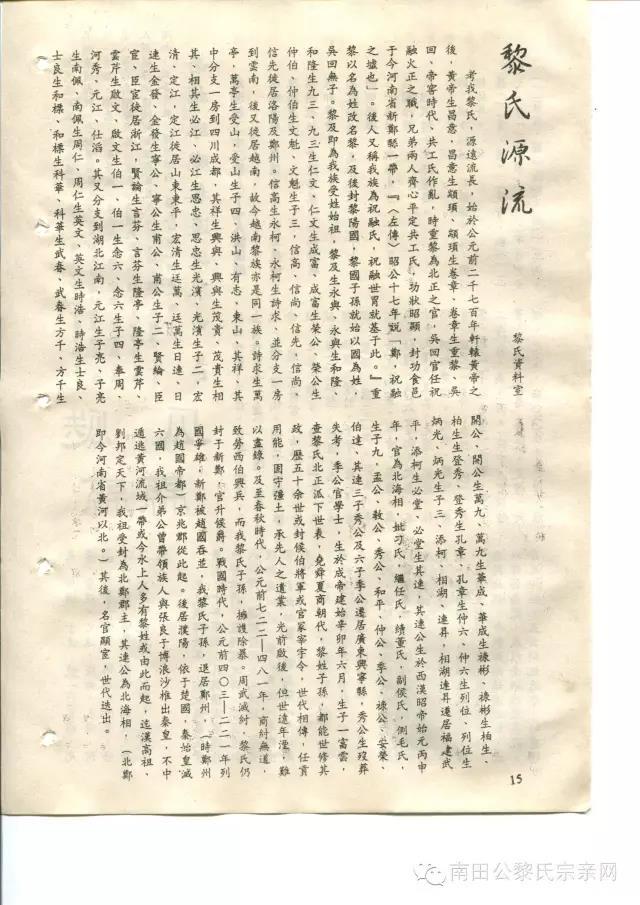 黎氏源流
黎氏資料室
考我黎氏，源遠流長，始於公元前二千七百年軒轅黃帝之
後，黃帝生昌意，昌意生顓頊，顓頊生卷章，卷章生重黎、吳
回、帝嚳時代、共工氏作亂，時重黎為北正之官，吳回官任祝
融火正之職，兄弟兩人齊心平定共工氏，功狀昭顯，封功食邑
于今河南省新鄭縣一帶，『《左傳》昭公十七年說「鄭，祝融
之墟也」。後人又稱我族為祝融氏，祝融世胄就基于此。』重
黎以名為姓改名黎，及後封黎陽國，黎國子孫就始以國為姓，
吳回無子。黎及即為我族受姓始祖，黎及生永興、永興生和隆、
和隆生九三、九三生仁文、仁文生成富、成富生榮公、榮公生
仲伯、仲伯生文魁、文魁生子三，信高、信尚、信先，信尚、
信先徙居洛陽及鄭州。信高生永柯、永柯生詩求，並分支一房
到雲南，後又徙居越南，故今越南黎族亦是同一族。詩求生萬
亭，萬亭生受山，受山生子四、洪山、有志、東山、其祥、其
中分支一房到四川成都，其祥生興與、興與生茂貴、茂貴生相
其、相其生必江、必江生思忠、思忠生光濱、光濱生子二，宏
清、定江，定江徙居山東東平，宏清生廷萬、廷萬生日連、日
連生金發、金發生寧公、寧公生甫公、甫公生子二、賢綸、臣
宦、臣宦徙居浙江，賢綸生言芬、言芬生隆亭、隆亭生雲芹、
雲芹生啟文、啟文生伯一、伯一生念六、念六生子四、奉周、
河秀、元江、仕滔。其又分支到湖北江南，元江生子亮、子亮
生南佩、南佩生周仁、周仁生英文、英文生時浩、時浩生士良、
士良生和樑、和樑生科華、科華生武春、武春生方千、方千生
開公、開公生萬九、萬九生華成、華成生祿彬、祿彬生柏生、
柏生生登秀、登秀生孔章、孔章生仲六、仲六生列位、列位生
炳光、炳光生子三、添柯、相湖、連昇，相湖連昇遷居福建武
平，添柯生必堂、必堂生其連，其連公生於西漢昭帝始元丙申
年，官為北海相，妣刁氏，繼任氏，續董氏，副侯氏，側毛氏，
生子九，孟公、敕公、秀公、和平、仲公、季公、祿公、安榮、
伯達、其連三子秀公及六子季公遷居廣東興寧縣，秀公生歿葬
失考，季公官學士，生於成帝建始辛卯年六月，生子一富雲，
查黎氏北正派下世表，堯舜夏商朝代，黎姓子孫，都能世修其
政，歷五十餘世或封侯伯將軍或官冢宰宇令，世代相傳，任賢
用能，固守彊土，承先人之遺業，光前啟後，但世遠年湮，難
以盡錄。及至春秋時代，公元前七二二—四八一年，商紂無道，
致勞西伯興兵，而我黎氏子孫，擁護除暴。周武滅紂，黎氏仍
封于新鄭，官升侯爵。戰國時代，公元前四〇三—二二一年列
國爭雄，新鄭被趙國吞並，我黎氏子孫，退居鄭州，（時鄭州
為趙國帝都）京兆郡從此起。後居濮陽，依于楚國，秦始皇滅
六國，我祖介弟公曾帶領族人與張良于博浪沙椎出秦皇，不中
遁逃黃河流域一帶或今水上人多有黎姓或由此而起，迄漢高祖，
劉邦定天下，我祖受封為北鄭郡主，其連公為北海相，（北鄭
即今河南省黃河以北。）其後，名官顯宦，世代迭出。
15
南田公黎氏宗亲网